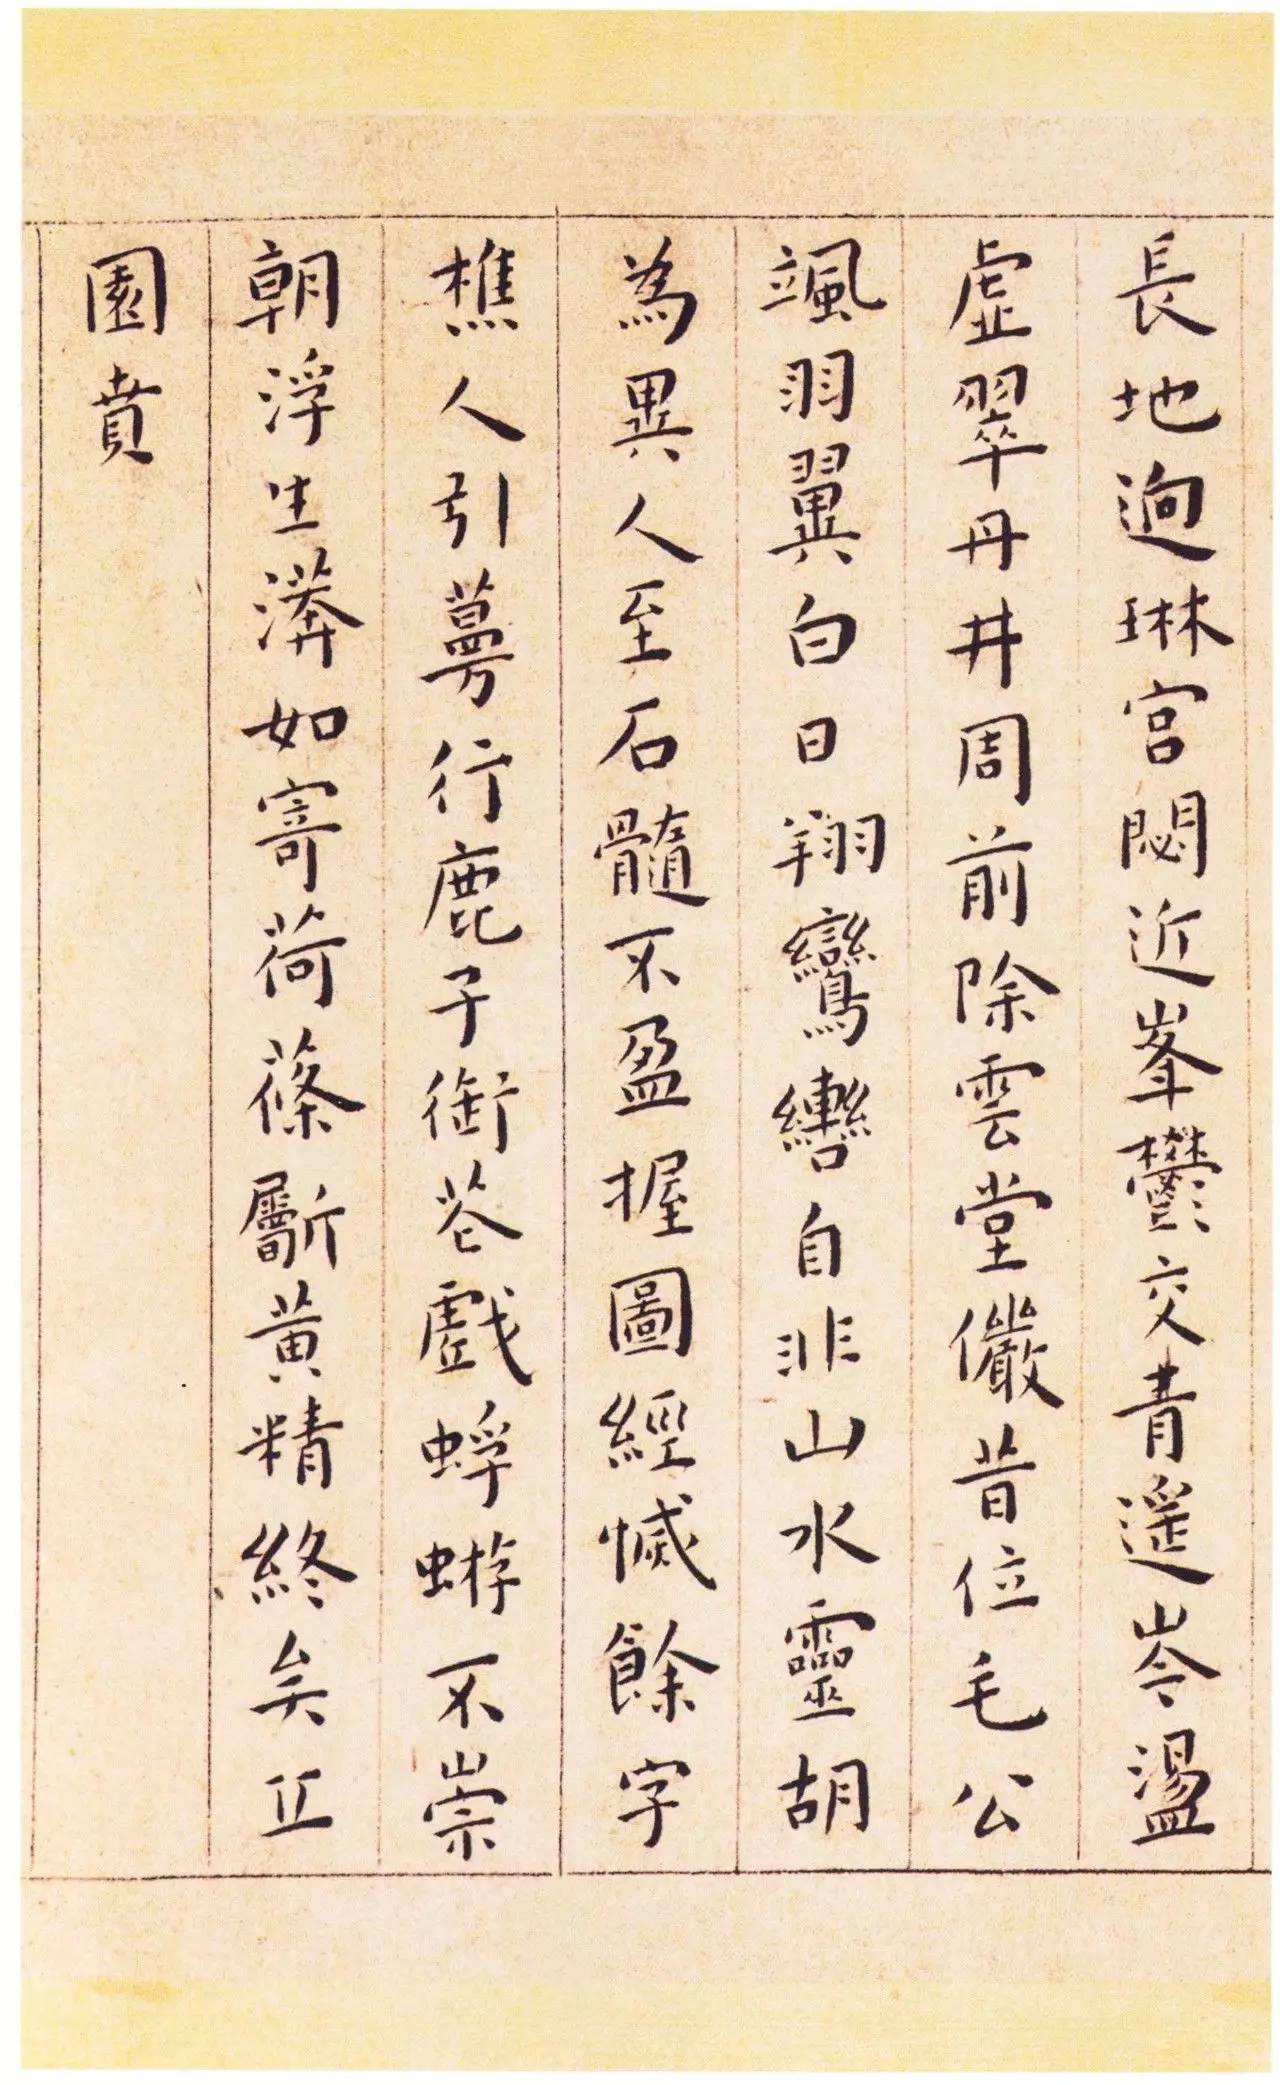 長地逈琳宮閟近峯鬱交青遥岑盪
虚翠丹井周前除雲堂儼昔位毛公
颯羽翼白日翔鸞轡自非山水靈胡
為異人至石髓不盈握圖經慽餘字
樵人引蔓行鹿子銜苍戲蜉蝣不崇
朝浮生漭如寄荷蓧斸黄精終矣丘
園賁